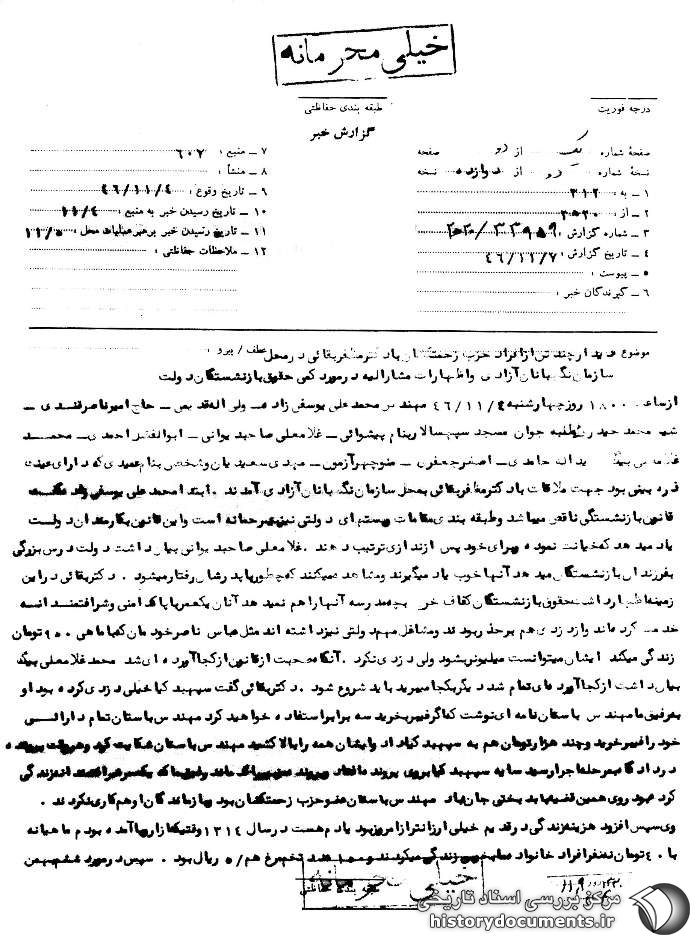 خیلی محرمانه
درجه فوریت
طبقه بندی حفاظتی
گزارش خبر
صفحهٔ شماره یک از دو صفحه
نسخهٔ شماره دو از دوازده نسخه
۱ ـ به : ۳۱۲
۲ ـ از : ۲۰ﻫ۲۰
۳ ـ شماره گزارش :
۴ ـ تاریخ گزارش : ۴۶/۱۱/۷
۵ ـ پیوست :
۶ ـ گیرندگان خبر :
۷ ـ منبع : ۶۰۲
۸ ـ منشأ :
۹ ـ تاریخ وقوع : ۴۶/۱۱/۴
۱۰ ـ تاریخ رسیدن خبر به منبع : ۱۱/۴
۱۱ ـ تاریخ رسیدن خبر برهبر عملیات محل : ۱۱/۵
۱۲ ـ ملاحظات حفاظتی :
موضوع دیدار چند تن از افراد حزب زحمتکشان با دکتر مظفر بقائی در محل عطف / پیرو :
سازمان نگهبانان آزادی و اظهارات مشارالیه در مورد کمی حقوق بازنشستگان دولت
از ساعت ۱۸۰۰ روز چهارشنبه ۴۶/۱۱/۴ مهندس محمد علی یوسفی زاده ـ ولی اله قدیمی ـ حاج امیر ناصر قندی ـ
شیخ محمد حیدری طلبه جوان مسجد سپهسالار بنام پیشوائی ـ غلامعلی صاحب دیوانی ـ ابوالفضل احمدی ـ محمد
غلامعلی بیگ یداله حامدی ـ اصغر جعفری ـ منوچهر آزمون ـ مهدی سعیدیان و شخصی بنام عمیدی که دارای عینک
ذره بینی بود جهت ملاقات با دکتر مظفر بقائی بمحل سازمان نگهبانان آزادی آمدند . ابتدا محمد علی یوسفی زاده گفت
قانون بازنشستگی ناقص میباشد و طبقه بندی مقامات و پستهای دولتی نیز بیرحمانه است و این قانون بکارمندان دولت
یاد میدهد که خیانت نموده و برای خود پس اندازی ترتیب دهند . غلامعلی صاحب دیوانی بیان داشت دولت درس بزرگی
بفرزندان بازنشستگان میدهد آنها خوب یاد میگیرند و مشاهده میکنند که چطور با پدرشان رفتار میشود . دکتر بقائی در این
زمینه اظهار داشت حقوق بازنشستگان کفاف خرج بچه مدرسه آنها را هم نمیدهد آنان یک عمر با پاکدامنی و شرافتمندانه
خدمت کرده اند و از دزدی هم برحذر بودند و مشاغل مهم دولتی نیز داشته اند مثل عباس ناصر خودمان که با ماهی ۹۰۰ تومان
زندگی میکند ایشان میتوانست میلیونر بشود ولی دزدی نکرد . آنگاه صحبت از قانون از کجا آورده ای شد محمد غلامعلی بیگ
بیان داشت از کجا آورده ای تمام شد دیگر بکجا میبرید باید شروع شود . دکتر بقائی گفت سپهبد کیا خیلی دزدی کرده بود او
به رفیق ما مهندس باستان نامه ای نوشت که اگر فیبر بخرید سه برابر استفاده خواهید کرد مهندس باستان تمام دارائی
خود را فیبر خرید و چند هزار تومان هم به سپهبد کیا داد و ایشان همه را بالا کشید مهندس باستان شکایت کرد و هر وقت پرونده
در دادگاه بمرحله اجرا رسید سایه سپهبد کیا بروی پرونده ما افتاد
کرده بود روی همین قضیه با بدبختی جان داد مهندس باستان عضو حزب زحمتکشان بود بازماندگان او هم کاری نکردند .
وی سپس افزود هزینه زندگی در قدیم خیلی ارزانتر از امروز بود یادم هست در سال ۱۳۱۴ وقتیکه از اروپا آمده بودم ماهیانه
با ۴۰ تومان نفر افراد خانواده زندگی میکردند و ۱۰۰ عدد تخم مرغ هم ۵/ ریال بود . سپس در مورد ششم بهمن
خیلی محرمانه
طبقه بندی حفاظتی
مرکز بررسی اسناد تاریخی
historydocuments.ir